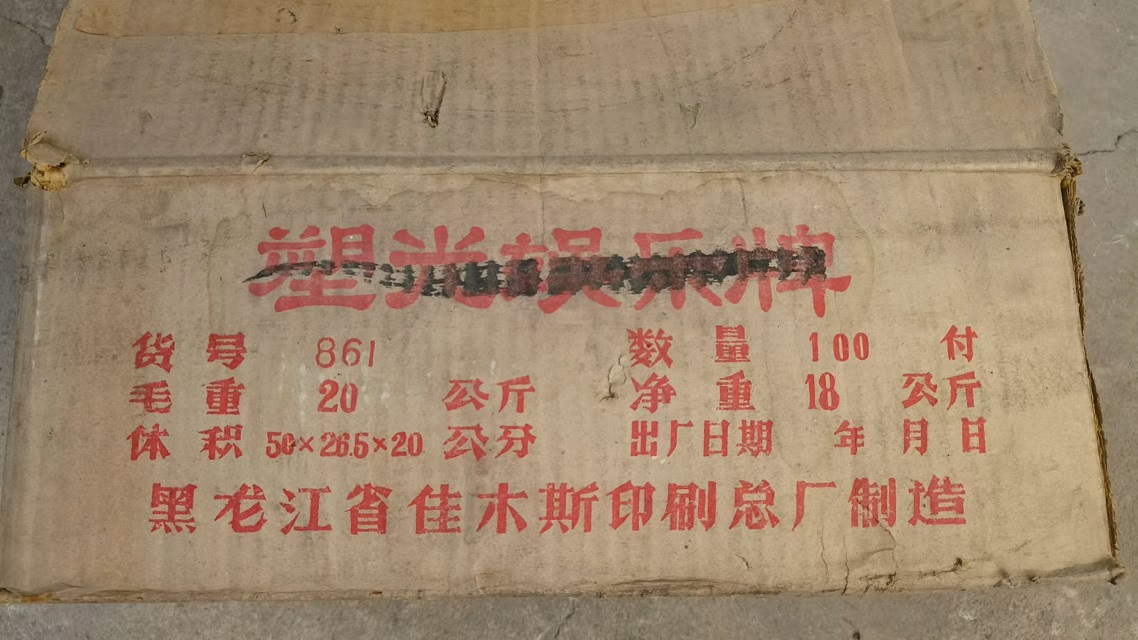 塑光娱乐牌
货号 861 数量 100 付
毛重 20 公斤 净重 18 公斤
体积 50×26.5×20 公分 出厂日期 年 月 日
黑龙江省佳木斯印刷总厂制造